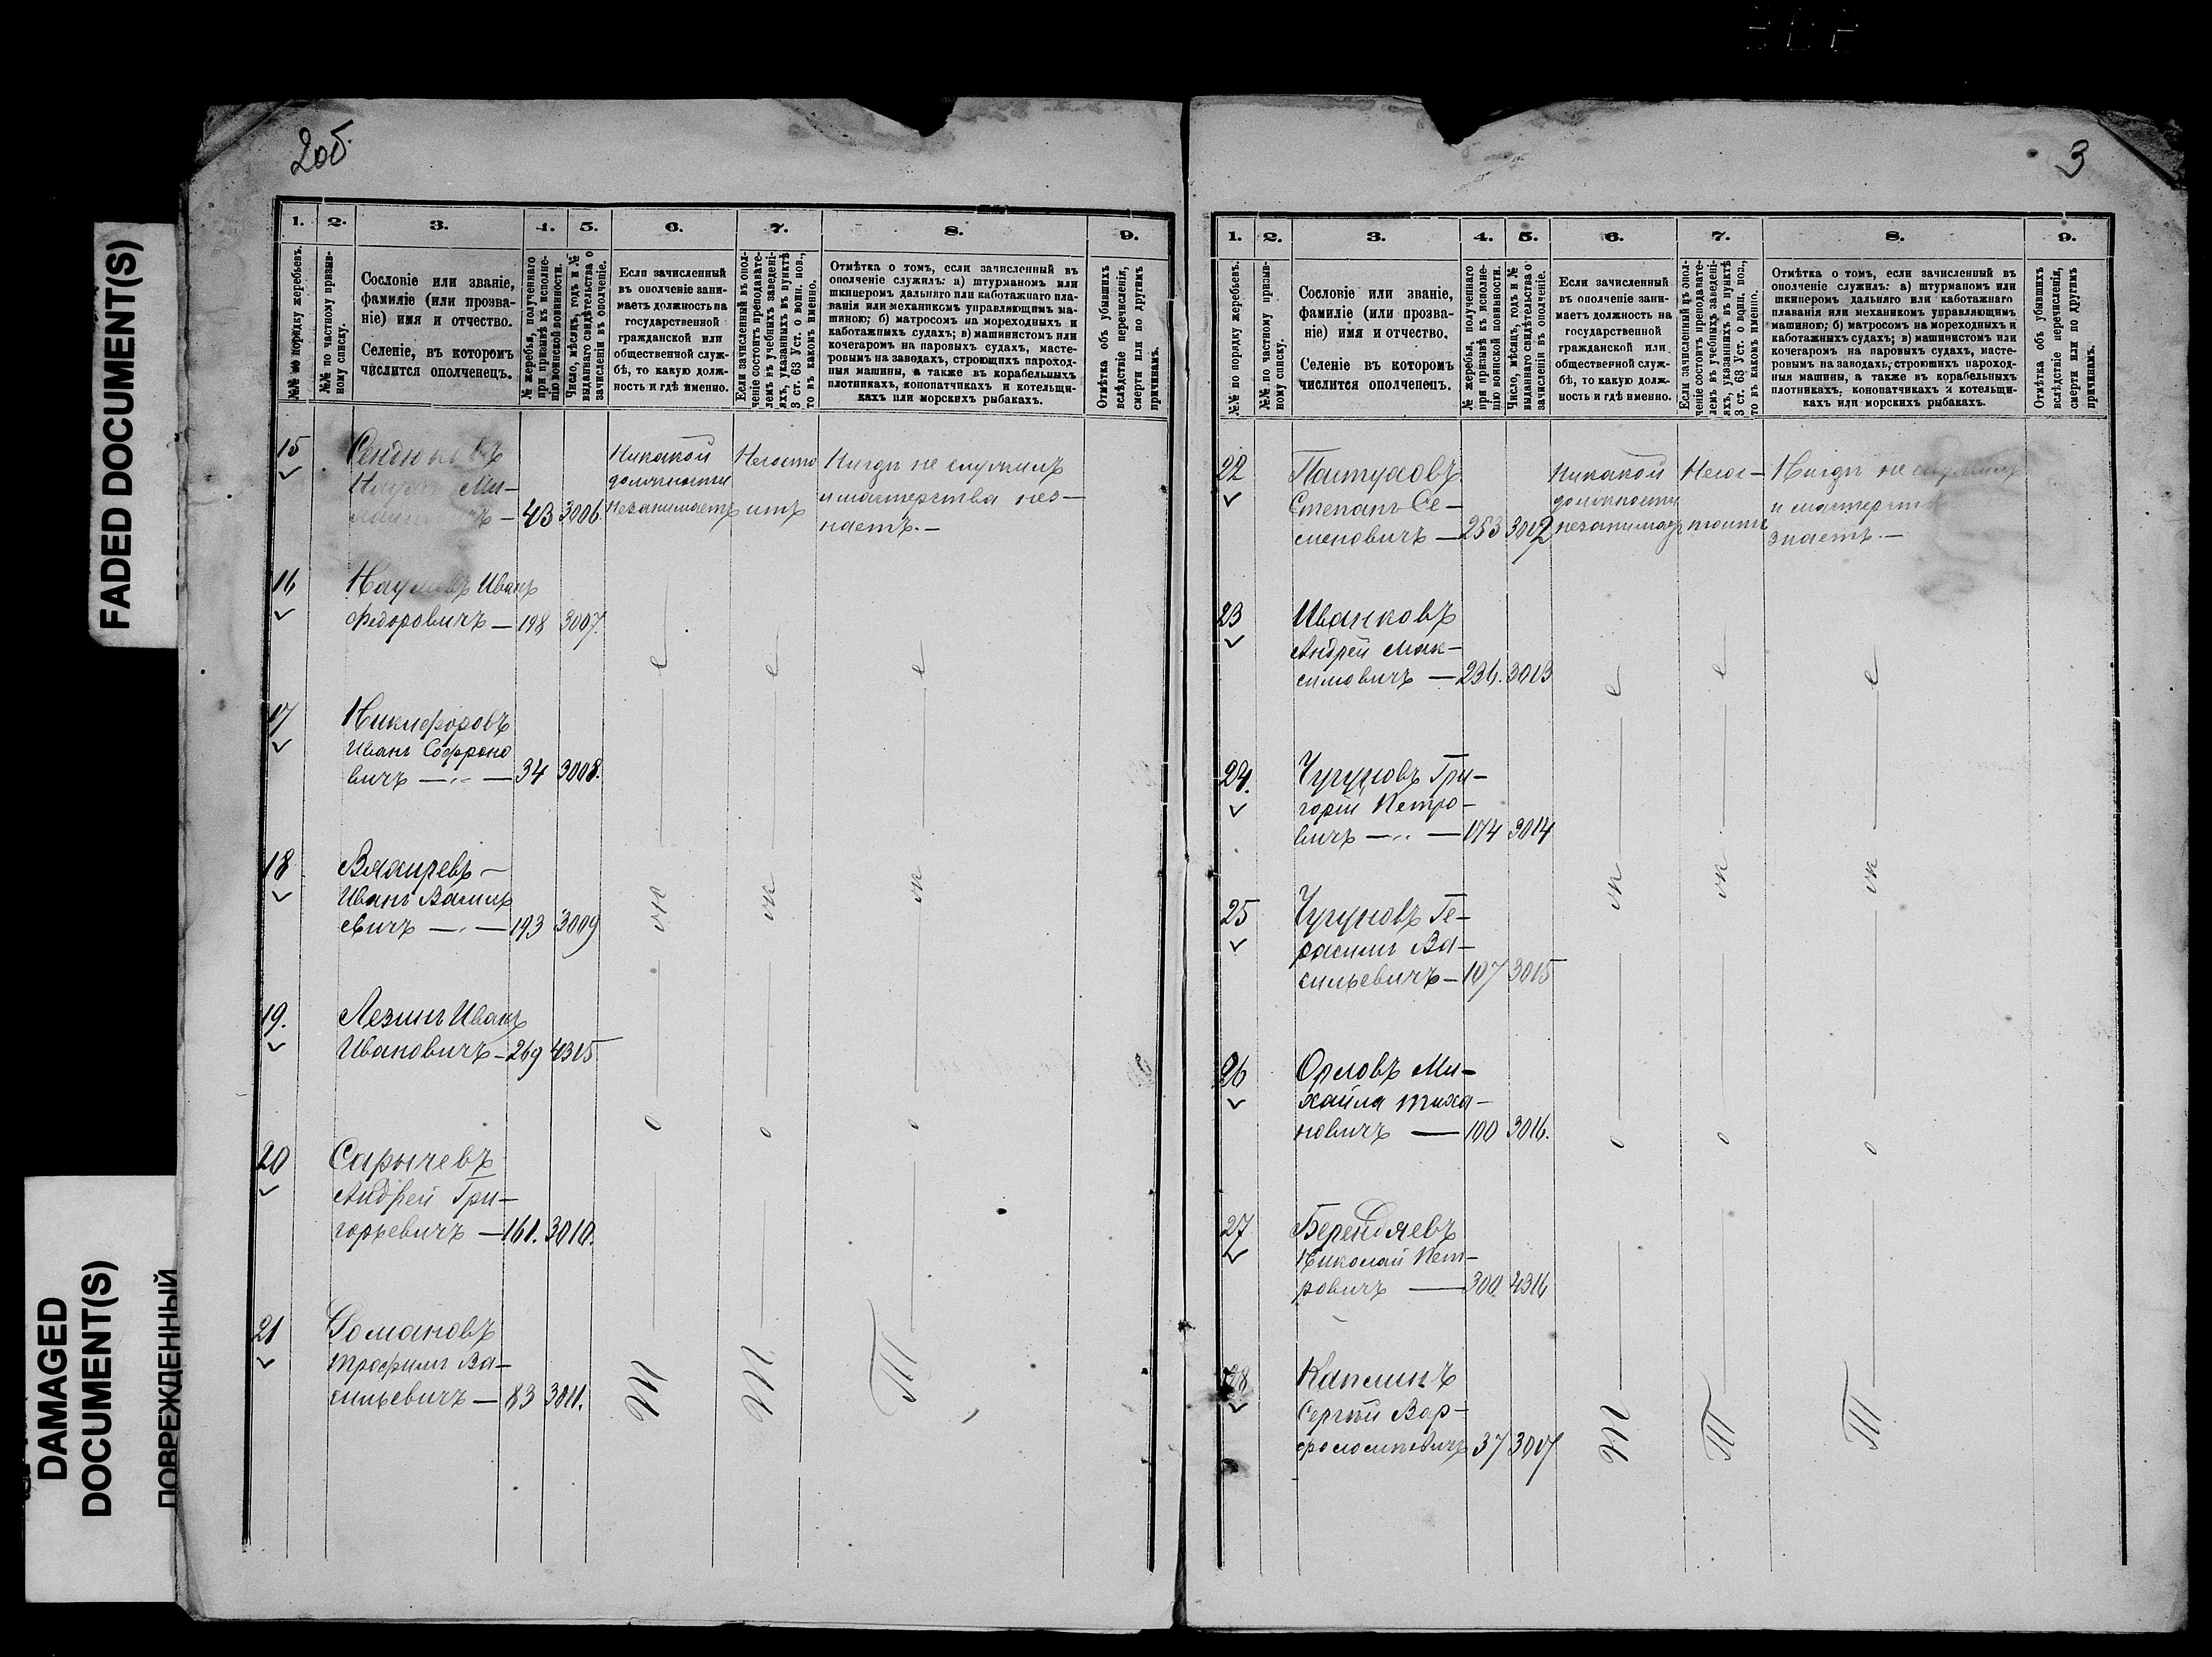 FADED DOCUMENT(S)
DAMAGED
DOCUMENT(S)
ПОВРЕЖДЕННЫЙ
2об.
1. 2. 3. 4. 5. 6. 7. 8. 9.
№№ по порядку жеребьевъ.
№№ по частному призыв-
ному списку.
Сословіе или званіе,
фамиліе (или прозва-
ніе) имя и отчество.
Селеніе, въ которомъ
числится ополченецъ.
№ жеребья, полученнаго
при призывѣ къ исполне-
нію воинской повинности.
Число, мѣсяцъ, годъ и №
выданнаго свидѣтельства о
зачисленіи въ ополченіе.
Если зачисленный
въ ополченіе зани-
маетъ должность на
государственной
гражданской или
общественной служ-
бѣ, то какую долж-
ность и гдѣ именно.
Если зачисленный въ опол-
ченіе состоитъ преподавате-
лемъ въ учебныхъ заведені-
яхъ, указанныхъ въ пунктѣ
3 ст. 63 Уст. о воин. пов.,
то въ какомъ именно.
Отмѣтка о томъ, если зачисленный въ
ополченіе служилъ: а) штурманомъ или
шкиперомъ дальняго или каботажнаго пла-
ванія или механикомъ управляющимъ ма-
шиною; б) матросомъ на мореходныхъ и
каботажныхъ судахъ; в) машинистомъ или
кочегаромъ на паровыхъ судахъ, масте-
ровымъ на заводахъ, строющихъ пароход-
ныя машины, а также въ корабельныхъ
плотникахъ, конопатчикахъ и котельщи-
кахъ или морскихъ рыбакахъ.
Отмѣтка объ убывшихъ
вслѣдствіе перечисленія,
смерти или по другимъ
причинамъ.
15 Никакой Несосто Нигдѣ не служилъ
Ми- должности и мастерства нез-
— 43 3006 незанимаетъ итъ наетъ.—
16 Наумовъ Иванъ
Федоровичъ — 198 3007.
17 Никифоровъ
Иванъ Софроно
вичъ — 34 3008.
18 Вяхиревъ —
Иванъ
евичъ — 193 3009
19. Лезинъ Иванъ
Ивановичъ — 269 4315
20 Сарычевъ
Андрей Гри-
горьевичъ — 161. 3010.
21
Трофимъ Ва-
сильевичъ — 83 3011.
е е е
ж ж ж
о о о
т т т
3
1. 2. 3. 4. 5. 6. 7. 8. 9.
№№ по порядку жеребьевъ.
№№ по частному призыв-
ному списку.
Сословіе или званіе,
фамиліе (или прозва-
ніе) имя и отчество.
Селеніе въ которомъ
числится ополченецъ.
№ жеребья, полученнаго
при призывѣ къ исполне-
нію воинской повинности.
Число, мѣсяцъ, годъ и №
выданнаго свидѣтельства о
зачисленіи въ ополченіе.
Если зачисленный
въ ополченіе зани-
маетъ должность на
государственной
гражданской или
общественной служ-
бѣ, то какую долж-
ность и гдѣ именно.
Если зачисленный въ опол-
ченіе состоитъ преподавате-
лемъ въ учебныхъ заведені-
яхъ, указанныхъ въ пунктѣ
3 ст. 63 Уст. о воин. пов.,
то въ какомъ именно.
Отмѣтка о томъ, если зачисленный въ
ополченіе служилъ: а) штурманомъ или
шкиперомъ дальняго или каботажнаго
плаванія или механикомъ управляющимъ
машиною; б) матросомъ на мореходныхъ и
каботажныхъ судахъ; в) машинистомъ или
кочегаромъ на паровыхъ судахъ, масте-
ровымъ на заводахъ, строющихъ пароход-
ныя машины, а также въ корабельныхъ
плотникахъ, конопатчикахъ и котельщи-
кахъ или морскихъ рыбакахъ.
Отмѣтка объ убывшихъ
вслѣдствіе перечисленія,
смерти или по другимъ
причинамъ.
22 Пастуховъ Никакой Несос- Нигдѣ не служилъ
Степанъ Се- должности и мастерства
меновичъ — 253 3002 незанимаетъ тоитъ знаетъ.—
23 Иванковъ
Андрей Мак-
симовичъ — 236. 3013
24. Чугуновъ Гри-
горій Петро-
вичъ — 174 3014
25 Чугуновъ Ге-
расимъ Ва-
сильевичъ — 107 3015
26 Орловъ Ми-
хайла Тиха-
новичъ — 100 3016.
27 Берендяевъ
Николай Пет-
ровичъ — 300 4316
28 Каплинъ
Сергѣй Вар-
фоломеевичъ 37 3017
е е е
ж ж ж
о о о
т т т